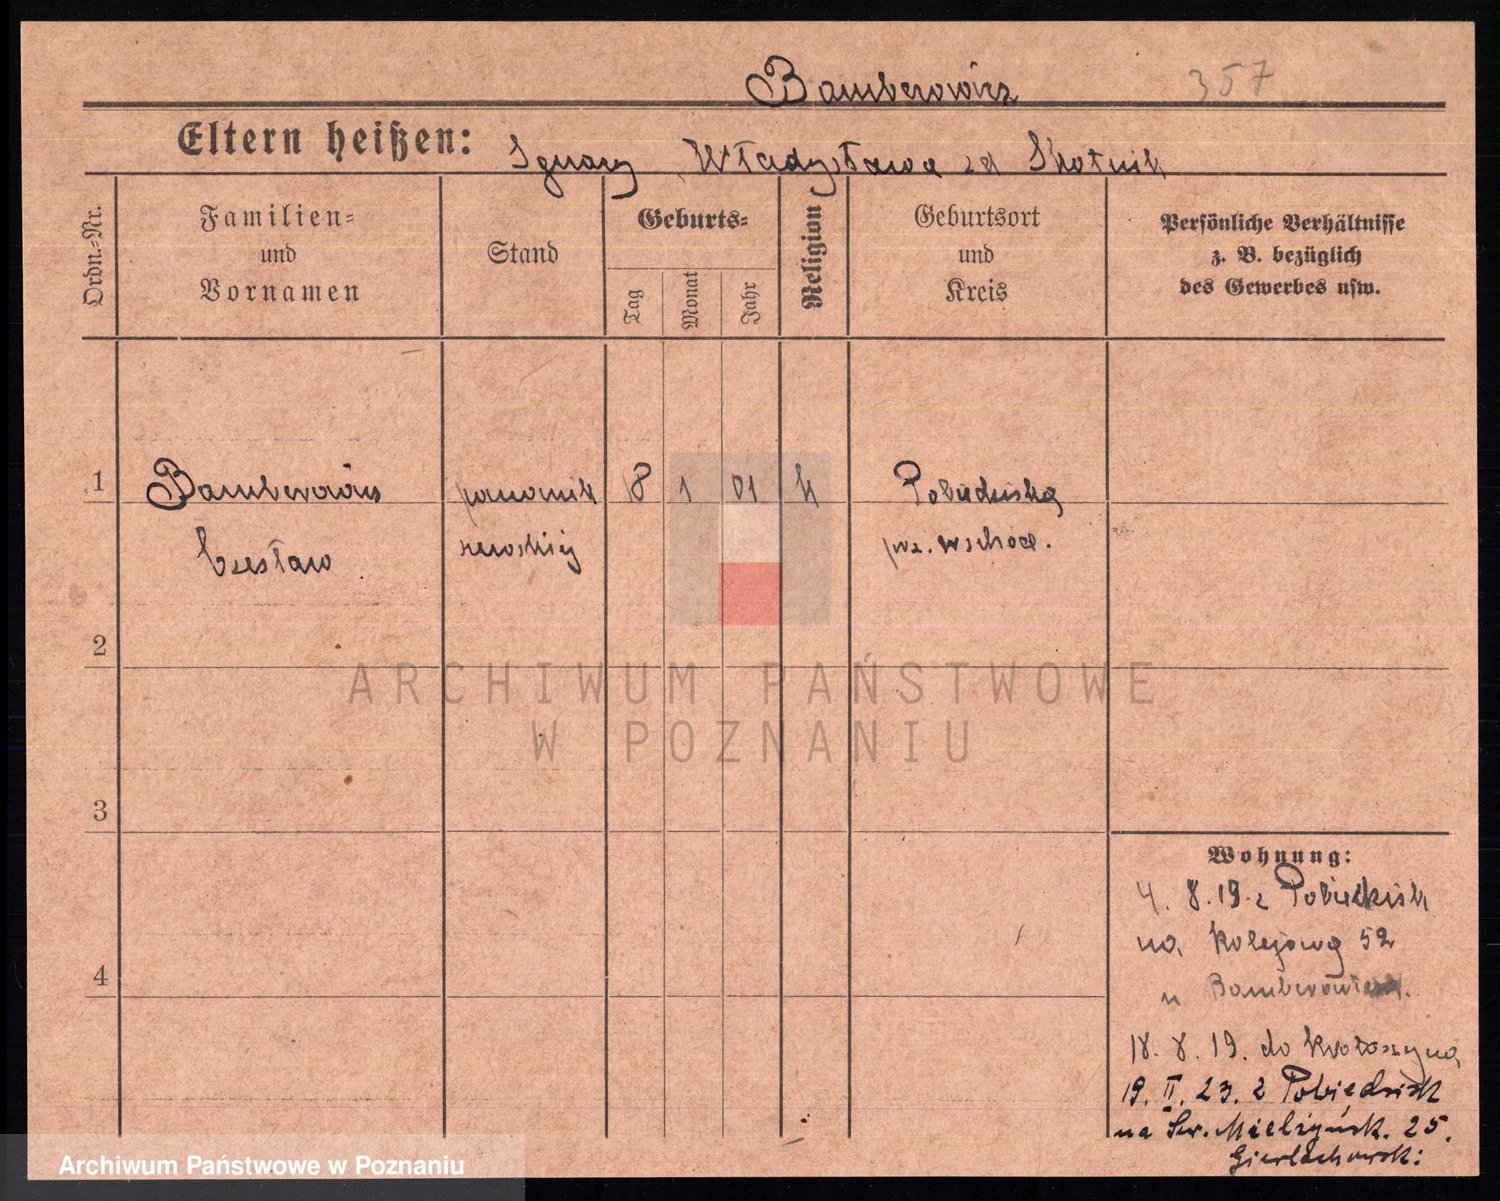 Bamberowicz 357
Eltern heißen: Ignacy, Władysława zd Skotnik
Ordn.-Nr.
Familien- und Vornamen
Stand
Geburts-
Tag
Monat
Jahr
Religion
Geburtsort und Kreis
Persönliche Verhältnisse z. B. bezüglich des Gewerbes usw.
1 Bamberowicz 8 1 01 k Pobiedziska
Czesław szewski pz. wschod.
2
3
4
Wohnung:
4. 8. 19. z Pobiedzisk
na Kolejową 52
u Bamberowicza.
18. 8. 19. do Krotoszyna
19. II. 23. z Pobiedzisk
na Sew. Mielżyńsk. 25.
Gierlachowski
ARCHIWUM PAŃSTWOWE
W POZNANIU
Archiwum Państwowe w Poznaniu